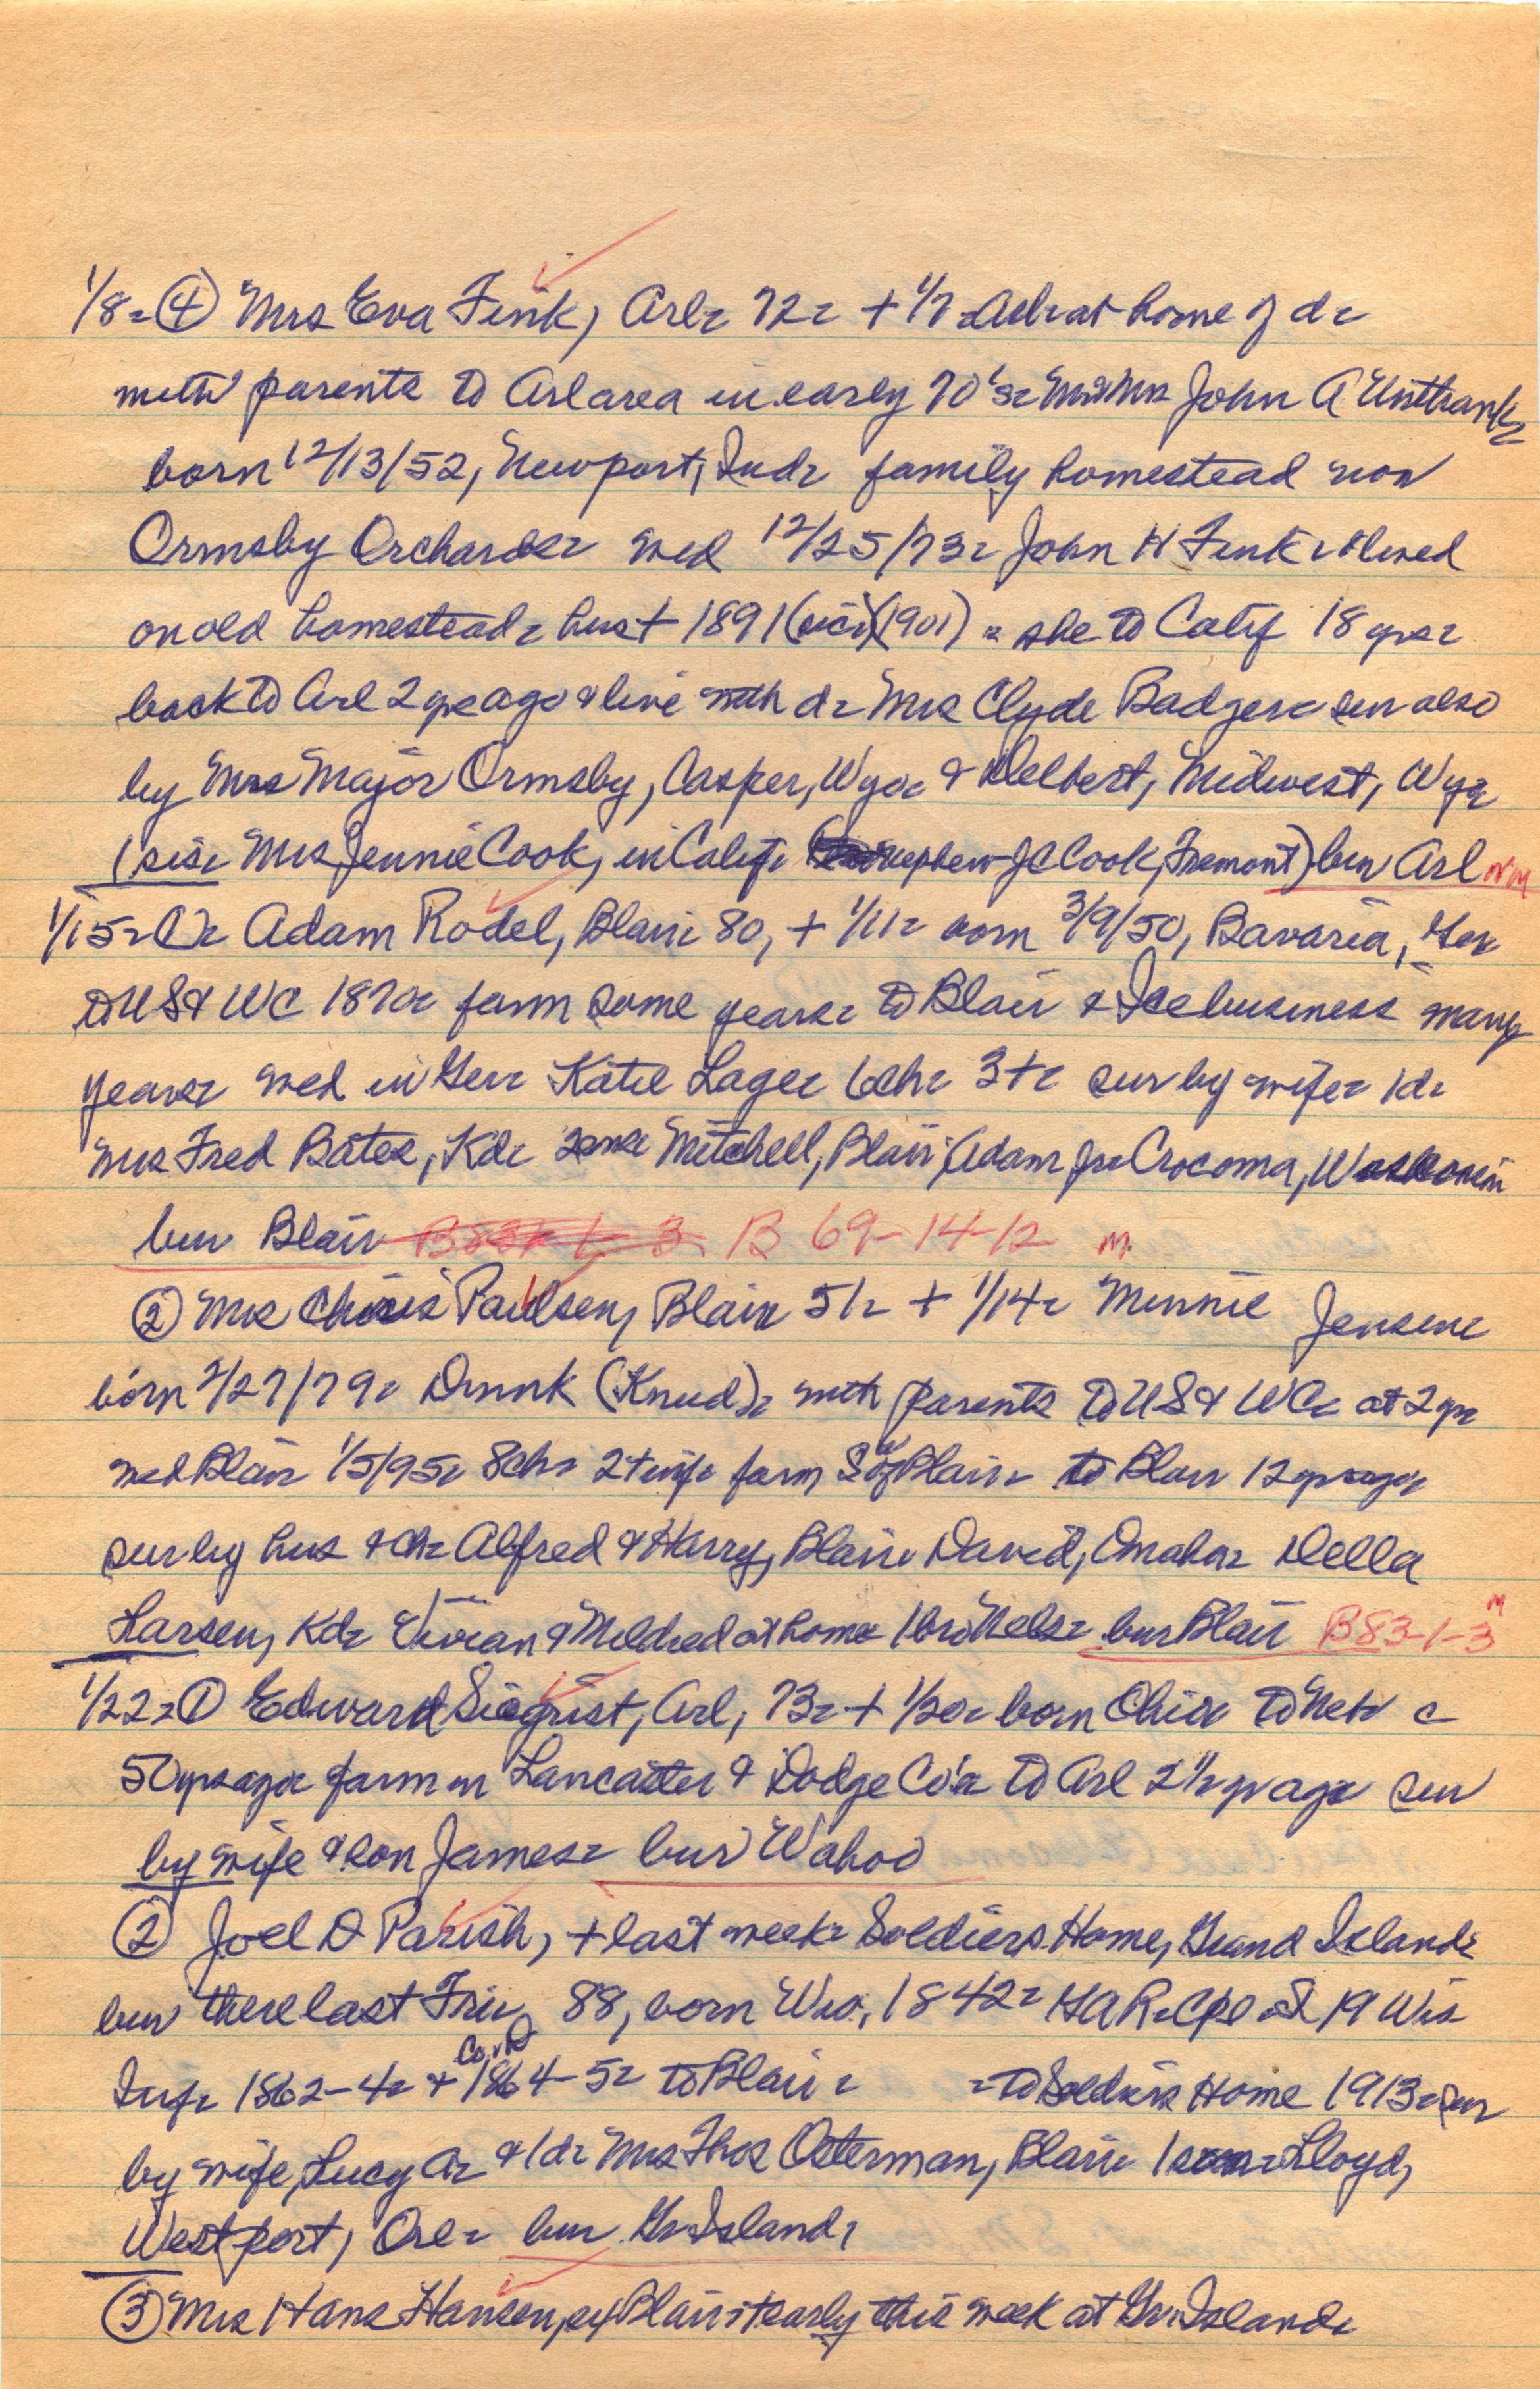 1/8 - ④ Mrs Eva Fink, Arl - 72 - + 1/7 - Arl - at home of d -
with parents to Arl area in early 70's - Mr & Mrs John A Unthank -
born 12/13/52, Newport, Ind - family homestead now
Ormsby Orchards - wed 12/25/73 - John H Fink - & lived
on old homestead - hus + 1891 (sic) (1901) - she to Calif 18 yrs -
back to Arl 2 yrs ago & live with d - Mrs Clyde Badger - sur also
by Mrs Major Ormsby, Casper, Wyo - & Delbert, Midwest, Wyo -
1 sis - Mrs Jennie Cook, in Calif - nephew - J C Cook, Fremont) bur Arl NM
1/15 - ① - Adam Rodel, Blair - 80, + 1/11 - born 3/9/50, Bavaria, Ger
to US & WC 1870 - farm some years - to Blair & Ice business many
years - wed in Ger - Katie Lage - 6 ch - 3 + - sur by wife - 1 d -
Mrs Fred Bates, Kd - 2 sons - Mitchell, Blair, Adam Jr - Crocoma, Wisconsin
bur Blair B 69-14-12 M.
② Mrs Chris Paulsen, Blair 51 - + 1/14 - Minnie Jensen -
born 2/27/79 - Dnmk (Knud) - with parents to US & WC - at 2 yrs
wed Blair 1/5/95 - 8 ch - 2 + inf - farm S W of Blair - to Blair 12 yrs ago
sur by hus & ch - Alfred & Harry, Blair - David, Omaha - Della
Larsen, Kd - Vivian & Mildred at home - 1 bro Nels - bur Blair B83-1-3 M
1/22 - ① Edward Siegrist, Arl, 73 - + 1/20 - born Ohio - to Neb c
50 yrs ago - farm in Lancaster & Dodge Co's - to Arl 2 1/2 yr ago - sur
by wife & son James - bur Wahoo
② Joel D Parish, + last week - Soldiers Home, Grand Island -
bur there last Fri - 88, born Wis., 1842 - GAR - Cpl - 19 Wis
Inf - 1862-4 - & Co. D 1864-5 - to Blair - - to Soldiers Home 1913 - sur
by wife, Lucy A - & 1 d - Mrs Thos Osterman, Blair - 1 son - Lloyd,
Westport, Ore - bur Gr Island -
③ Mrs Hans Hansen, ex Blair - + early this week at Gr. Island -